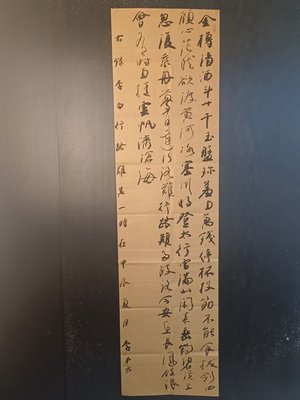 金樽清酒斗十千玉盤珍羞直萬錢停杯投筯不能食拔劍四
顧心茫然欲渡黄河冰塞川將登太行雪滿山閑來垂釣碧溪上
忽復乘舟夢日邊行路難行路難多歧路今安在長風破浪
會有時直挂雲帆濟滄海
右錄李白行路難其一時在甲辰夏月李